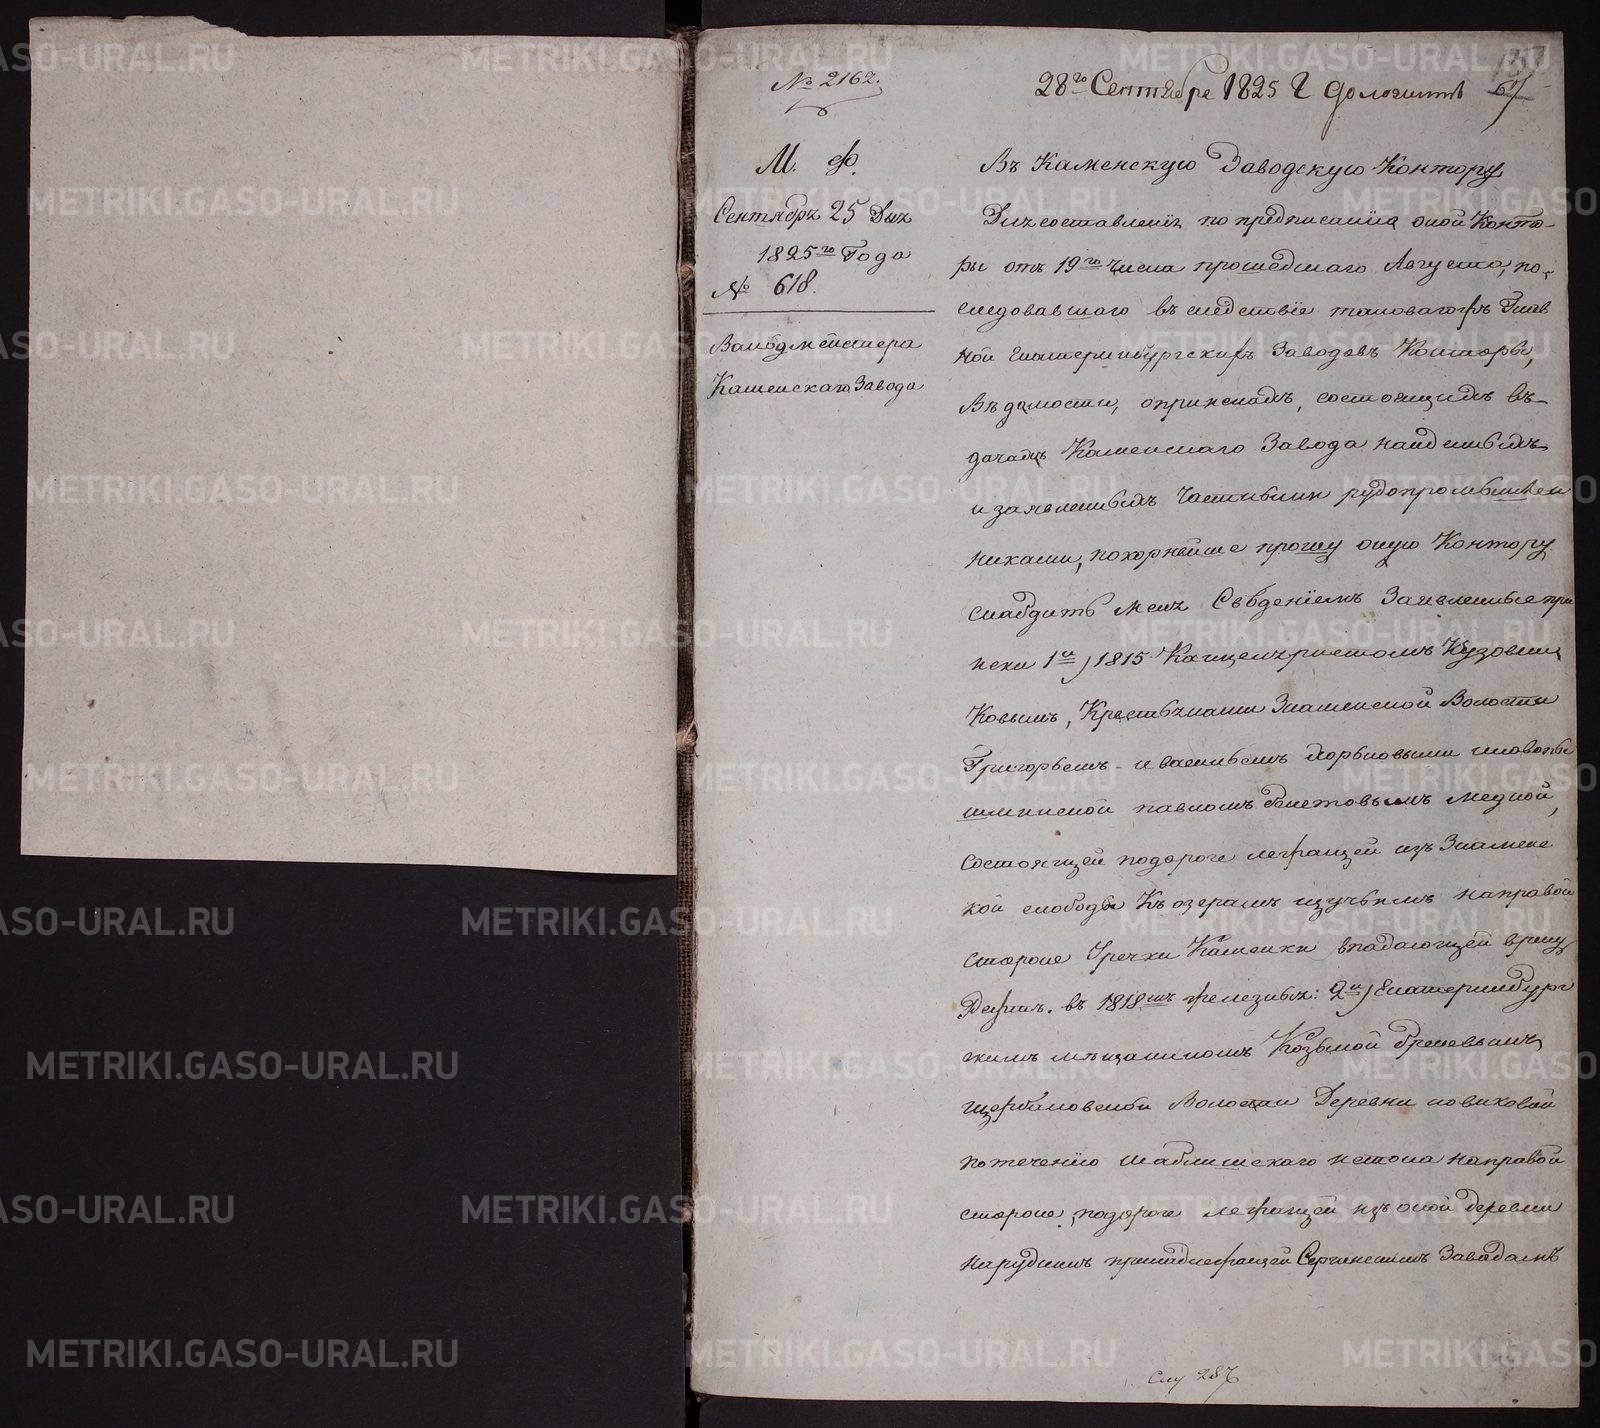 № 2162.
28го Сентября 1825 Г доложить
67
М. Ф.
Сентября 25 Дня
1825го Года
№ 618.
Валдмейстера
Каменскаго Завода
Въ Каменскую Заводскую Контору
Для составленія по предписанію оной Конто-
ры отъ 19го Числа прошедшаго Августа, по-
следовавшаго въ следствіе таковагожъ Глав
ной Екатеринбургскихъ Заводовъ Конторы,
Ведомости, о прінскахъ, состоящихъ въ-
дачахъ Каменскаго Завода найденныхъ
и заявленныхъ Частными рудопромышлен
никами, покорнейше прошу оную Контору
снабдить меня Сведеніемъ Заявленные при
иски 1й) 1815 Канцеляристомъ Кузовни
ковымъ, Крестьянами Знаменской Волости
Григорьемъ и васильемъ
павломъ медной,
состоящей подороге лежащей изъ Знаменс
кой слободы Къ озерамъ направой
стороне Уречки Каменки впадающей вреку
Рефтъ. въ 1818мъ железныя: 2й) Екатеринбург
скимъ мещаниномъ Козьмой
щербаковской Волости Деревни новиковой
потеченію шаблишскаго истока направой
стороне, подороге лежащей изъ оной деревни
нарудникъ принадлежащей Сергинскимъ Заводамъ
METRIKI.GASO-URAL.RU